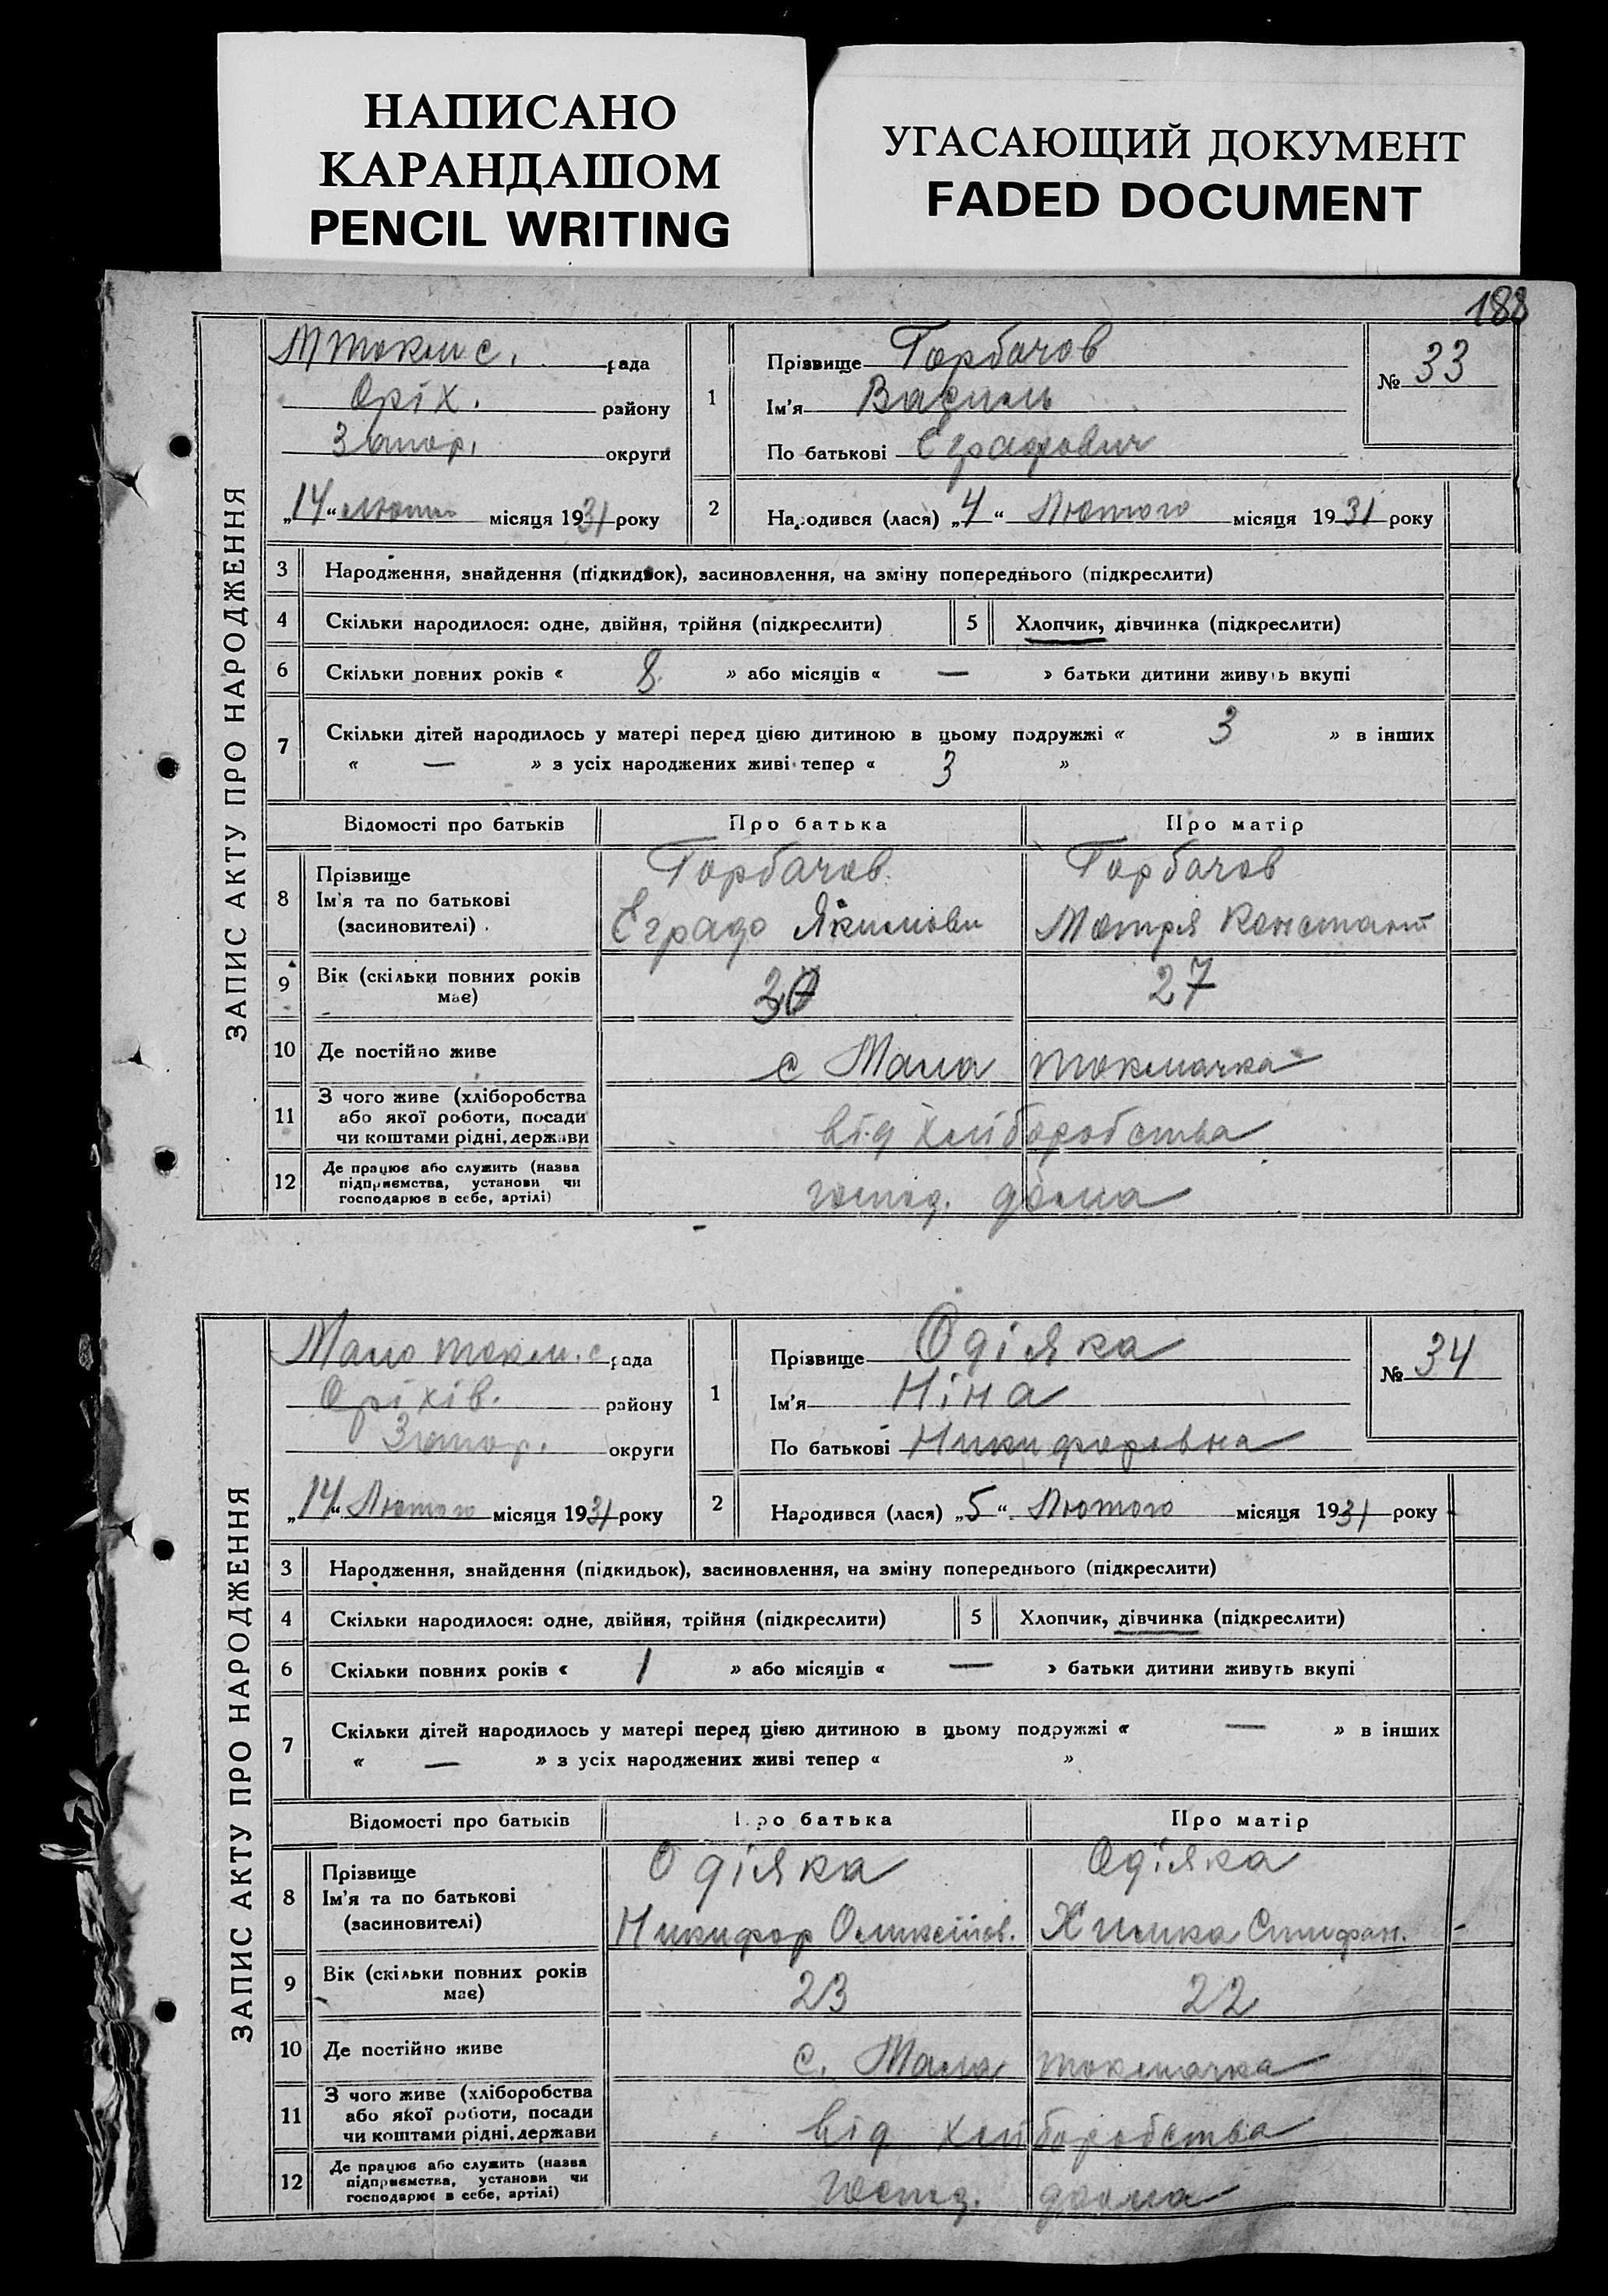 НАПИСАНО
КАРАНДАШОМ
PENCIL WRITING
УГАСАЮЩИЙ ДОКУМЕНТ
FADED DOCUMENT
188
ЗАПИС АКТУ ПРО НАРОДЖЕННЯ
М токм с. рада
Оріх. району
Запор. округи
„14“ лютого місяця 1931 року
1 Прізвище Горбачов
Ім'я Василь
По батькові
№ 33
2 Народився (лася) „4“ Лютого місяця 1931 року
3 Народження, знайдення (підкидьок), засиновлення, на зміну попереднього (підкреслити)
4 Скільки народилося: одне, двійня, трійня (підкреслити) 5 Хлопчик, дівчинка (підкреслити)
6 Скільки повних років « 8 » або місяців « — » батьки дитини живуть вкупі
7 Скільки дітей народилось у матері перед цією дитиною в цьому подружжі « 3 » в інших
« — » з усіх народжених живі тепер « 3 »
Відомості про батьків Про батька Про матір
8 Прізвище
Ім'я та по батькові
(засновителі)
Горбачов Горбачов
Якимови Мотря Констант
9 Вік (скільки повних років
має)
30 27
10 Де постійно живе с Мала токмачка
11 З чого живе (хліборобства
або якої роботи, посади
чи коштами рідні, держави
від хліборобства
12 Де працює або служить (назва
підприємства, установи чи
господарює в себе, артілі)
господ. дома
ЗАПИС АКТУ ПРО НАРОДЖЕННЯ
Мало токм. с рада
Оріхів. району
Запор. округи
„14“ Лютого місяця 1931 року
1 Прізвище Одіяка
Ім'я Ніна
По батькові Никифоровна
№ 34
2 Народився (лася) „5“ Лютого місяця 1931 року
3 Народження, знайдення (підкидьок), засиновлення, на зміну попереднього (підкреслити)
4 Скільки народилося: одне, двійня, трійня (підкреслити) 5 Хлопчик, дівчинка (підкреслити)
6 Скільки повних років « 1 » або місяців « — » батьки дитини живуть вкупі
7 Скільки дітей народилось у матері перед цією дитиною в цьому подружжі « — » в інших
« — » з усіх народжених живі тепер « »
Відомості про батьків Про батька Про матір
8 Прізвище
Ім'я та по батькові
(засиновителі)
Одіяка Одіяка
Никифор Химка
9 Вік (скільки повних років
має)
23 22
10 Де постійно живе с. Мала токмачка
11 З чого живе (хліборобства
або якої роботи, посади
чи коштами рідні, держави
від хліборобства
12 Де працює або служить (назва
підприємства, установи чи
господарює в себе, артілі)
господ. дома